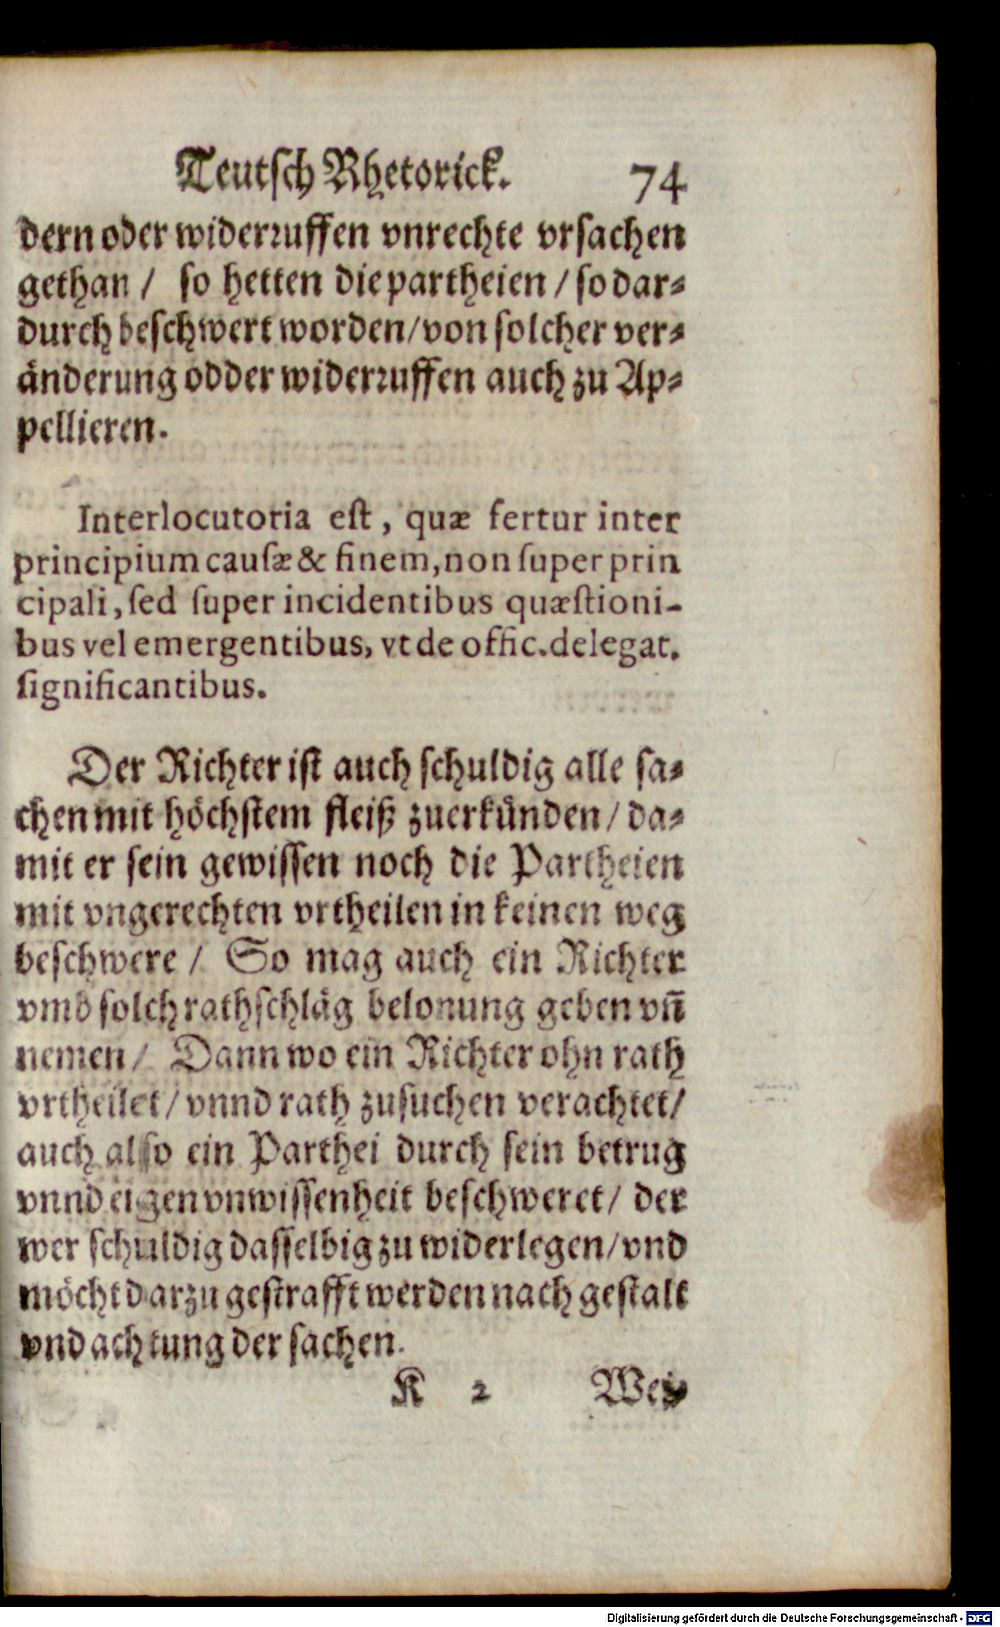 Teutsch Rhetorick. 74
dern oder widerꝛuffen vnrechte vrsachen
gethan / so hetten die partheien / so dar⸗
durch beschwert worden/von solcher ver⸗
änderung odder widerꝛuffen auch zu Ap⸗
pellieren.
Interlocutoria eſt, quæ fertur inter
principium cauſæ & finem, non ſuper prin
cipali, ſed ſuper incidentibus quæſtioni-
bus vel emergentibus, vt de offic. delegat.
ſignificantibus.
Der Richter ist auch schuldig alle sa⸗
chen mit höchstem fleiß zuerkünden / da⸗
mit er sein gewissen noch die Partheien
mit vngerechten vrtheilen in keinen weg
beschwere / So mag auch ein Richter
vmb solch rathschläg belonung geben vñ
nemen / Dann wo ein Richter ohn rath
vrtheilet / vnnd rath zusuchen verachtet/
auch also ein Parthei durch sein betrug
vnnd eigen vnwissenheit beschweret / der
wer schuldig dasselbig zu widerlegen/vnd
möcht darzu gestrafft werden nach gestalt
vnd achtung der sachen.
K 2 Wei⸗
Digitalisierung gefördert durch die Deutsche Forschungsgemeinschaft - DFG